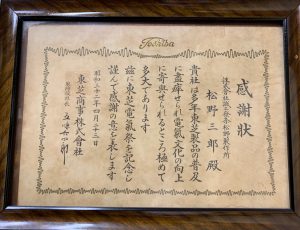 Toshiba
感謝狀
松野三郎殿
貴社は多年東芝製品の普及
に盡瘁せられ電氣文化の向上
に寄與せられるところ極めて
多大であります
茲に東芝電氣祭を記念し
謹んで感謝の意を表します
昭和二十三年四月二十三日
東芝商事株式會社